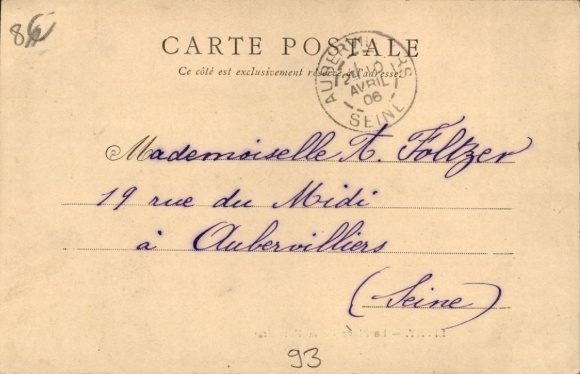 86
CARTE POSTALE
Ce côté est exclusivement réservé à l'adresse.
AUBERVILLIERS
AVRIL
06
SEINE
Mademoiselle A. Foltzer
19 rue du Midi
à Aubervilliers
(Seine)
93